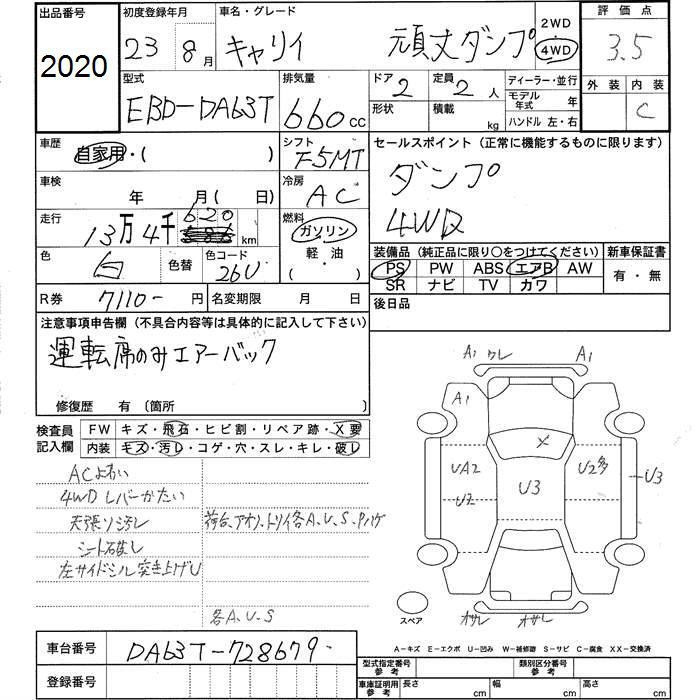 出品番号
2020
初度登録年月
23 8月
車名・グレード
キャリイ 頑丈ダンプ
2WD
4WD
評価点
3.5
外装 内装
C
型式
EBD-DA63T
排気量
660cc
ドア 2
定員 2人
形状
積載 kg
ディーラー・並行
モデル年式 年
ハンドル 左・右
車歴
自家用・( )
シフト
F5MT
セールスポイント(正常に機能するものに限ります)
ダンプ
4WD
車検
年 月( 日)
冷房
AC
走行
13万4千620km
燃料
ガソリン
軽油
( ・ )
色
白
色替
色コード
26U
装備品(純正品に限り○をつけてください)
PS PW ABS エアB AW
SR ナビ TV カワ
新車保証書
有・無
R券 7110- 円
名変期限 月 日
後日品
注意事項申告欄(不具合内容等は具体的に記入して下さい)
運転席のみエアーバック
修復歴 有〔箇所 〕
検査員記入欄
FW キズ・飛石・ヒビ割・リペア跡・X要
内装 キズ・汚レ・コゲ・穴・スレ・キレ・破レ
ACよわい
4WDレバーかたい
天張ソリ汚レ
荷台、アオリ、トリイ各A、U、S、Pハゲ
シート石破し
左サイドシル突き上げU
各A、U、S
A1 ワレ A1
A1
UA2
U2
U3
U2多
U3
X
スペア
オサレ オサレ
A-キズ E-エクボ U-凹み W-補修跡 S-サビ C-腐食 XX-交換済
車台番号
DA63T-728679
登録番号
型式指定番号
参考
類別区分番号
参考
車庫証明用
参考
長さ cm
幅 cm
高さ cm